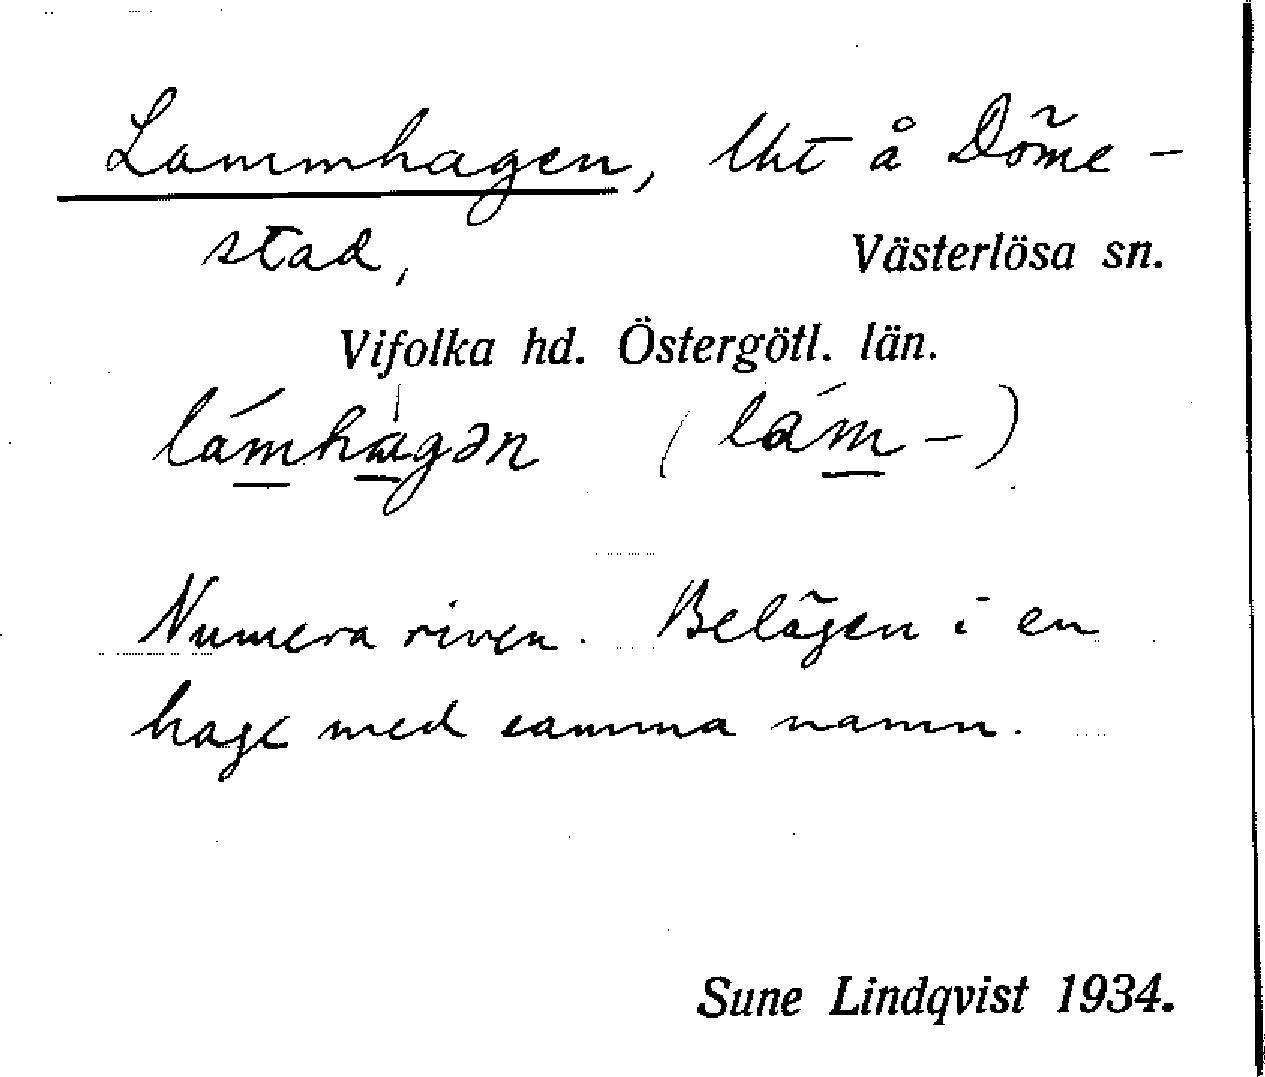 Lammhagen, lht å Döme-
stad, Västerlösa sn.
Vifolka hd. Östergötl. län.
lámhàgən (lám-)
Numera riven. Belägen i en
hage med samma namn.
Sune Lindqvist 1934.